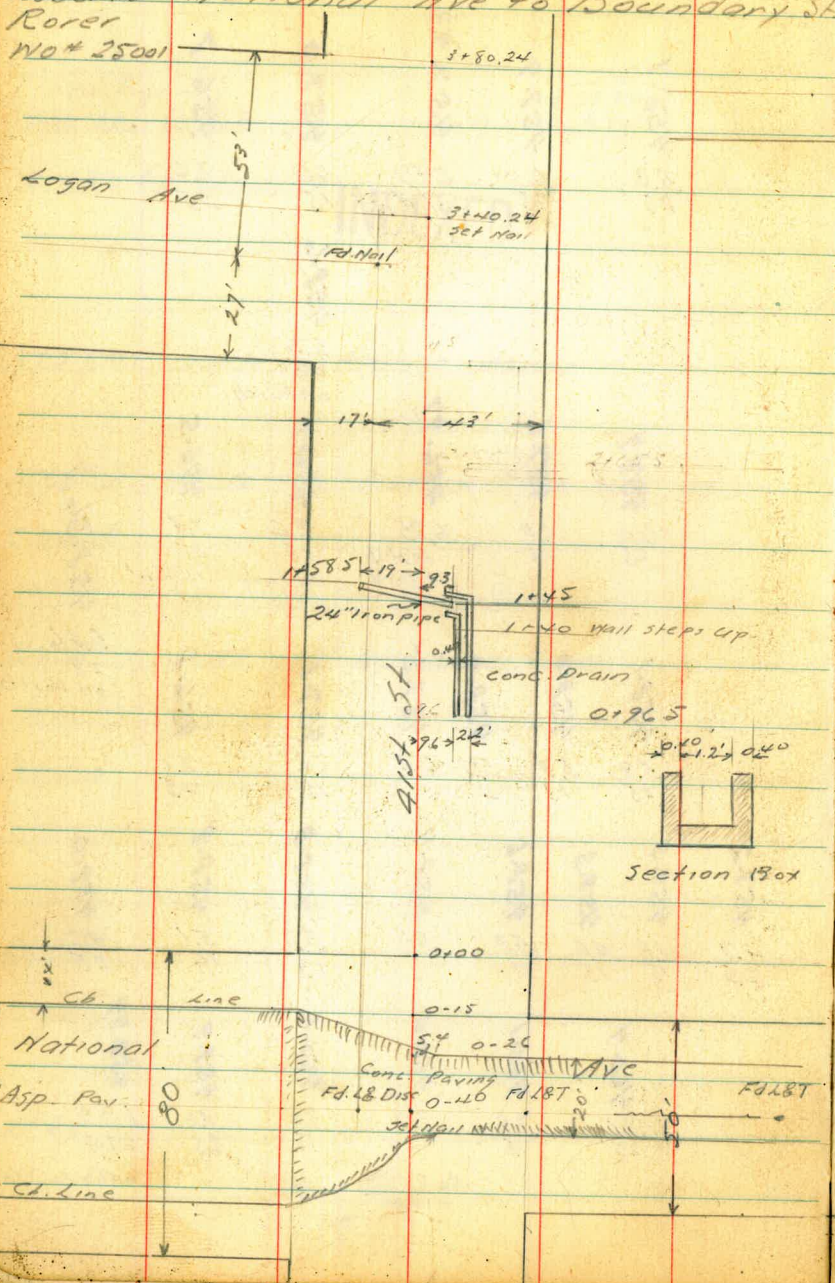 National Ave to Boundary St
Rorer
WO # 25001
3+80.24
53'
Logan Ave
3+40.24
Set Nail
Fd. Nail
27'
17' 43'
1+58.5 19' 93
1+45
24" Iron pipe
1+40 Wall steps up
0.4
Conc. Drain
41st St.
0+96.5
96 2.2'
0.40 1.2' 0.40
Section Box
0+00
Cb. Line
0-15
National
5.4 0-26
Ave
Conc. Paving
Asp. Pav.
80
Fd. L&Disc 0-40 Fd L&T
20'
Fd L&T
Set Nail
50'
Cb. Line